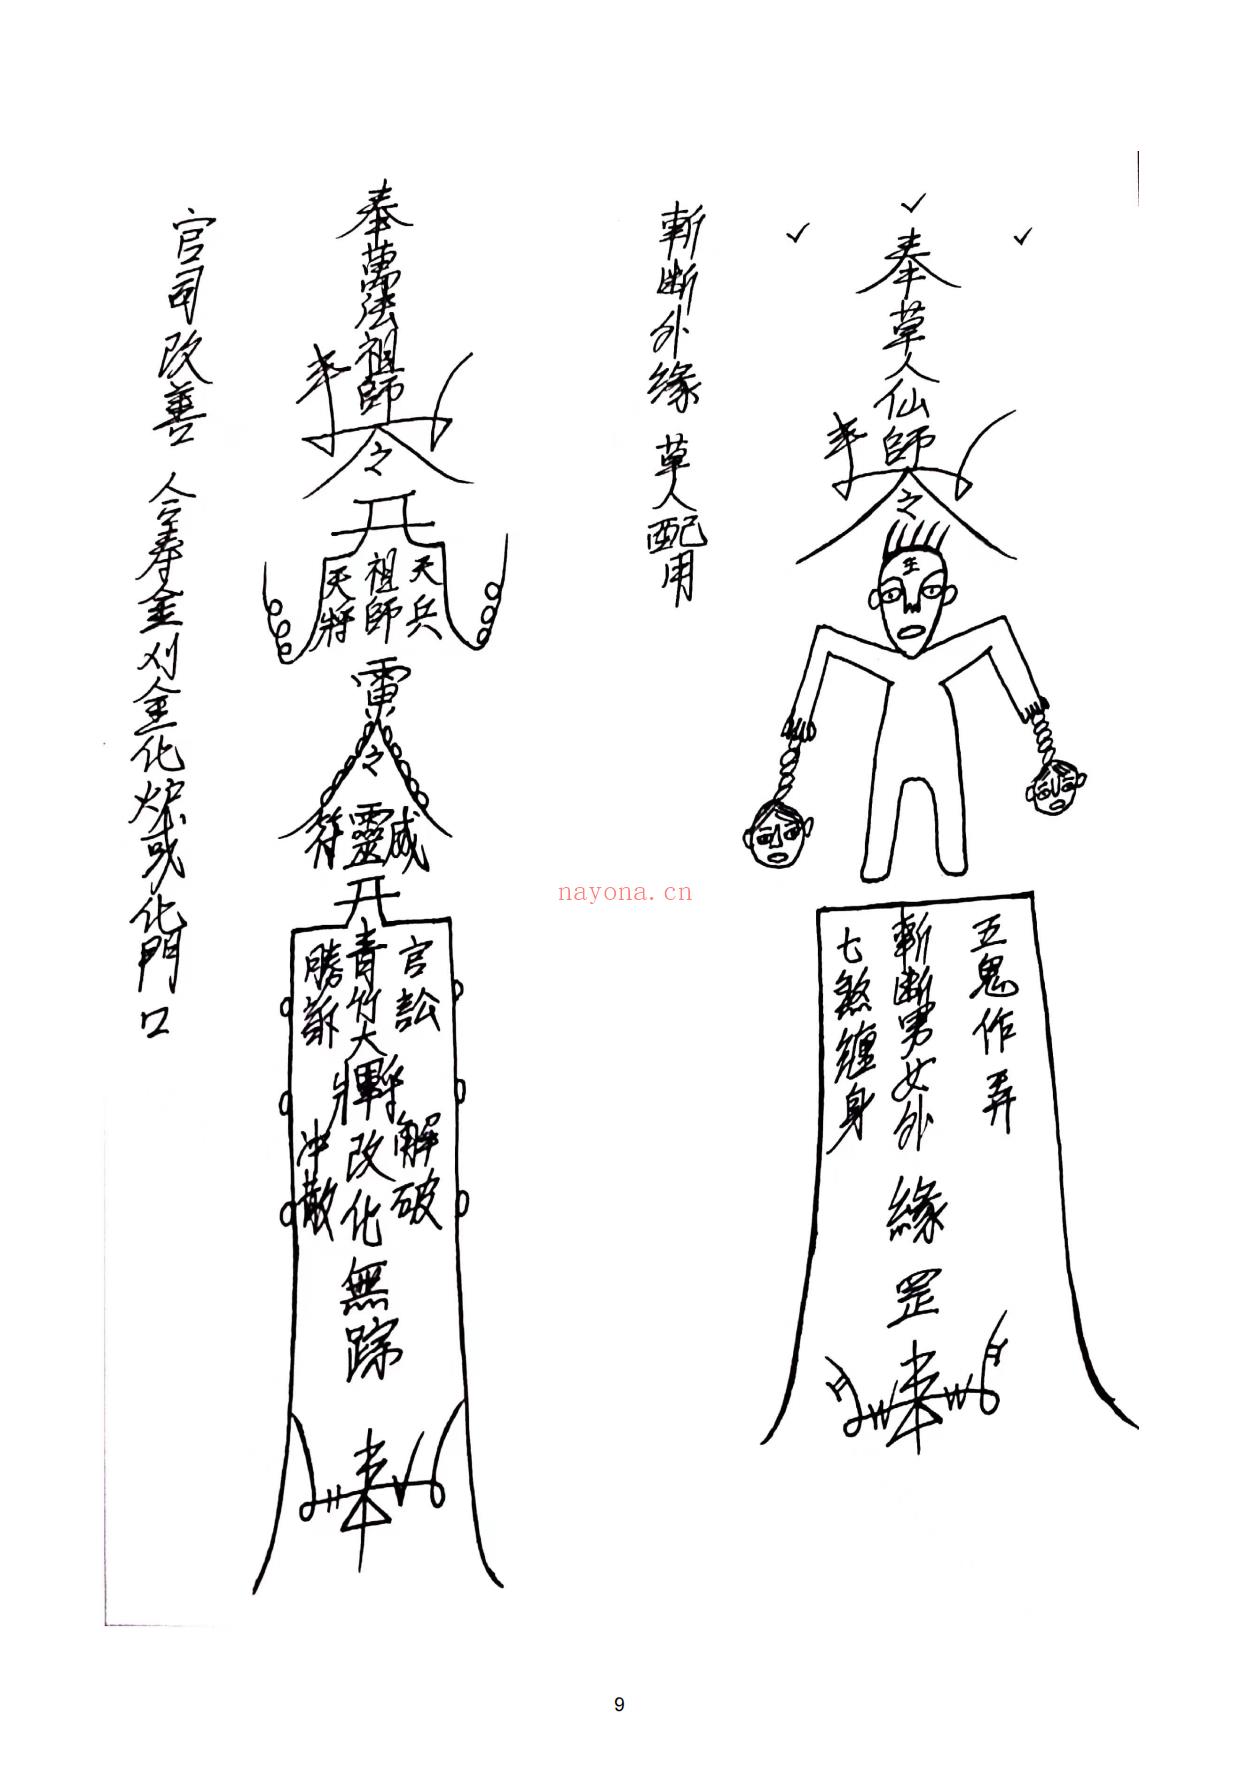 奉草人仙師
奉
令
之
生
五鬼作弄
斬斷男女外緣罡
七煞纏身
斬斷外緣 草人配用
奉萬法祖師
奉
令
之
天兵
祖師
天將
雷
之
威靈符
官訟
解破
青竹大將軍
改化無踪
勝訴
冲散
官司改善 合壽金刈金化炉或化門口
nayona.cn
9